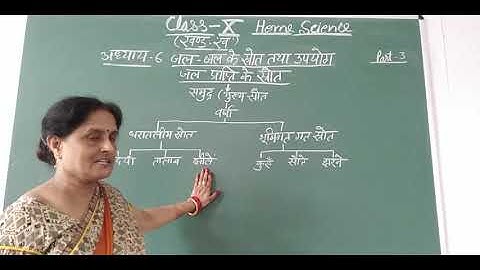 Class-X Home Science
(खण्ड-ख)
अध्याय-6 जल-जल के स्रोत तथा उपयोग Part-3
जल प्राप्ति के स्रोत
समुद्र (मुख्य स्रोत
वर्षा
धरातलीय स्रोत भूमिगत स्रोत
तालाब झीलें कुएँ सोते झरने